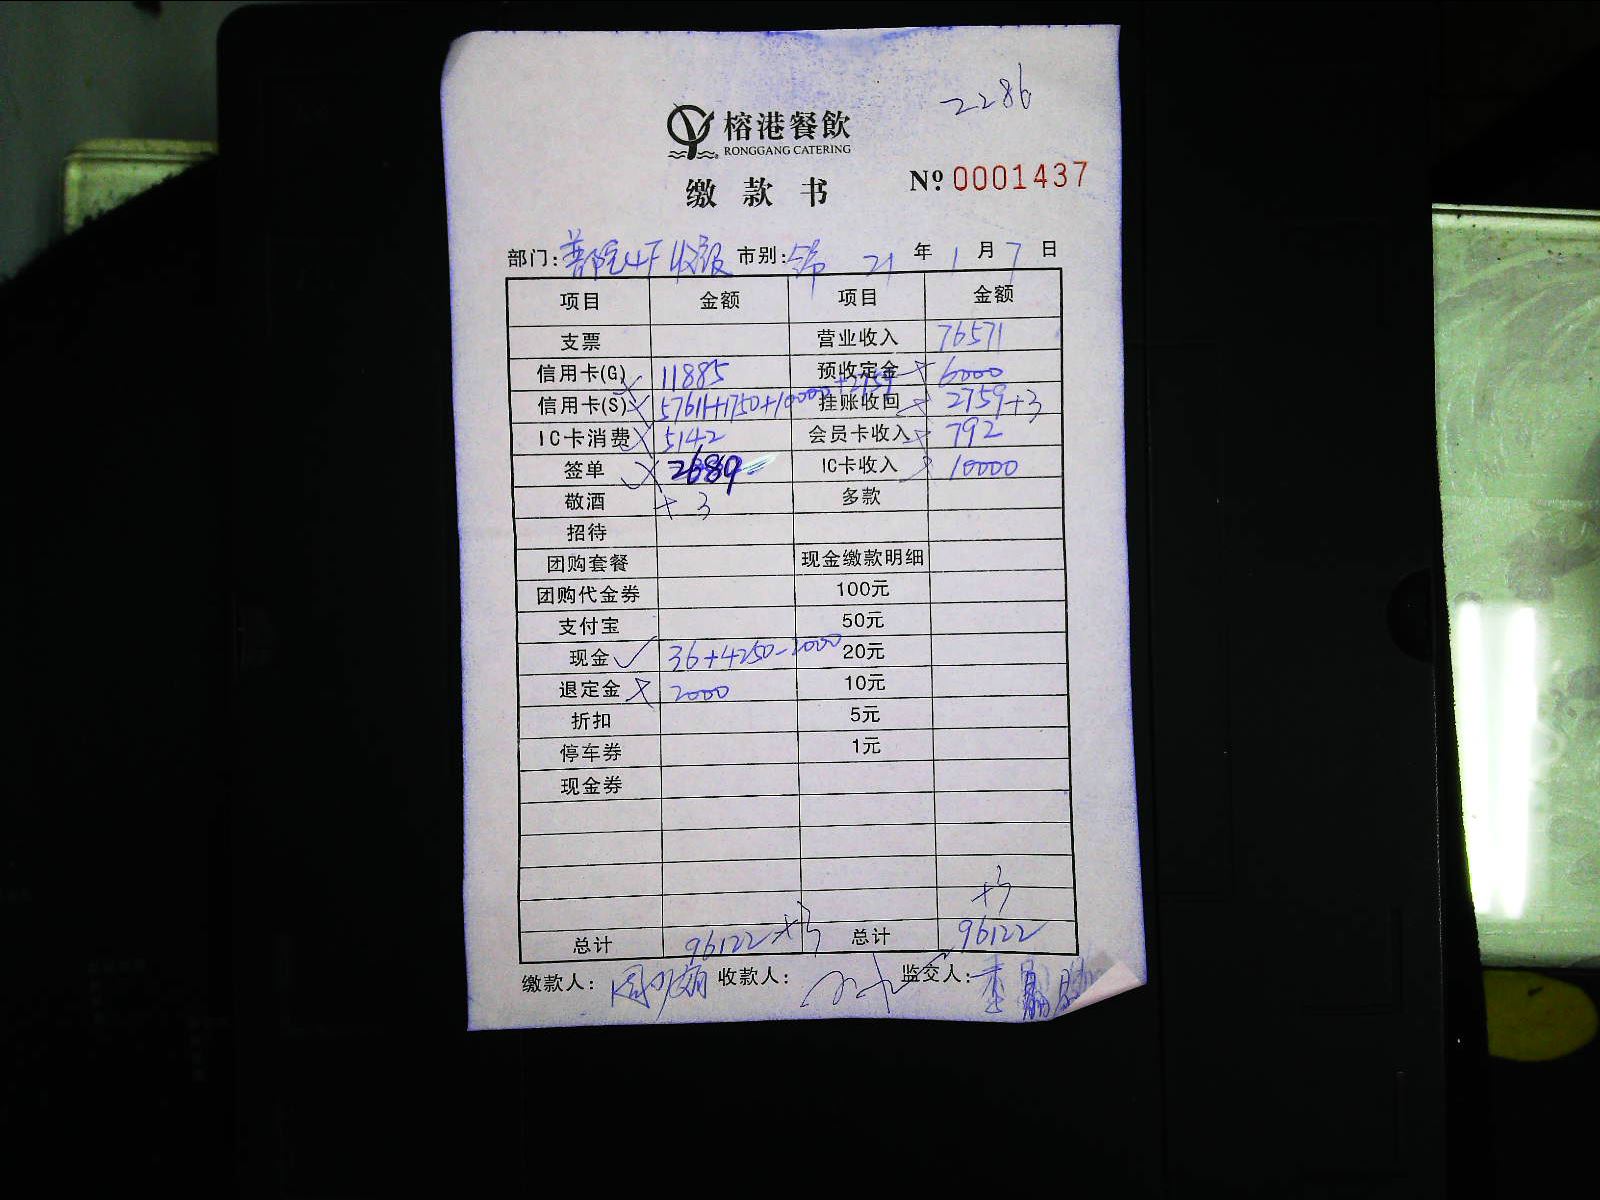 2286
榕港餐飲
RONGGANG CATERING
缴款书
Nº 0001437
部门: 市别: 21 年 1 月 7 日
项目 金额 项目 金额
支票 营业收入 76571
信用卡(G) 11885 预收定金 6000
信用卡(S) 57611+1750+10000+2759 挂账收回 2759+3
IC卡消费 5142 会员卡收入 792
签单 2689 IC卡收入 10000
敬酒 + 3 多款
招待
团购套餐 现金缴款明细
团购代金券 100元
支付宝 50元
现金 36+4250-2000 20元
退定金 2000 10元
折扣 5元
停车券 1元
现金券
+3
总计 96122 +3 总计 96122
缴款人: 收款人: 监交人: